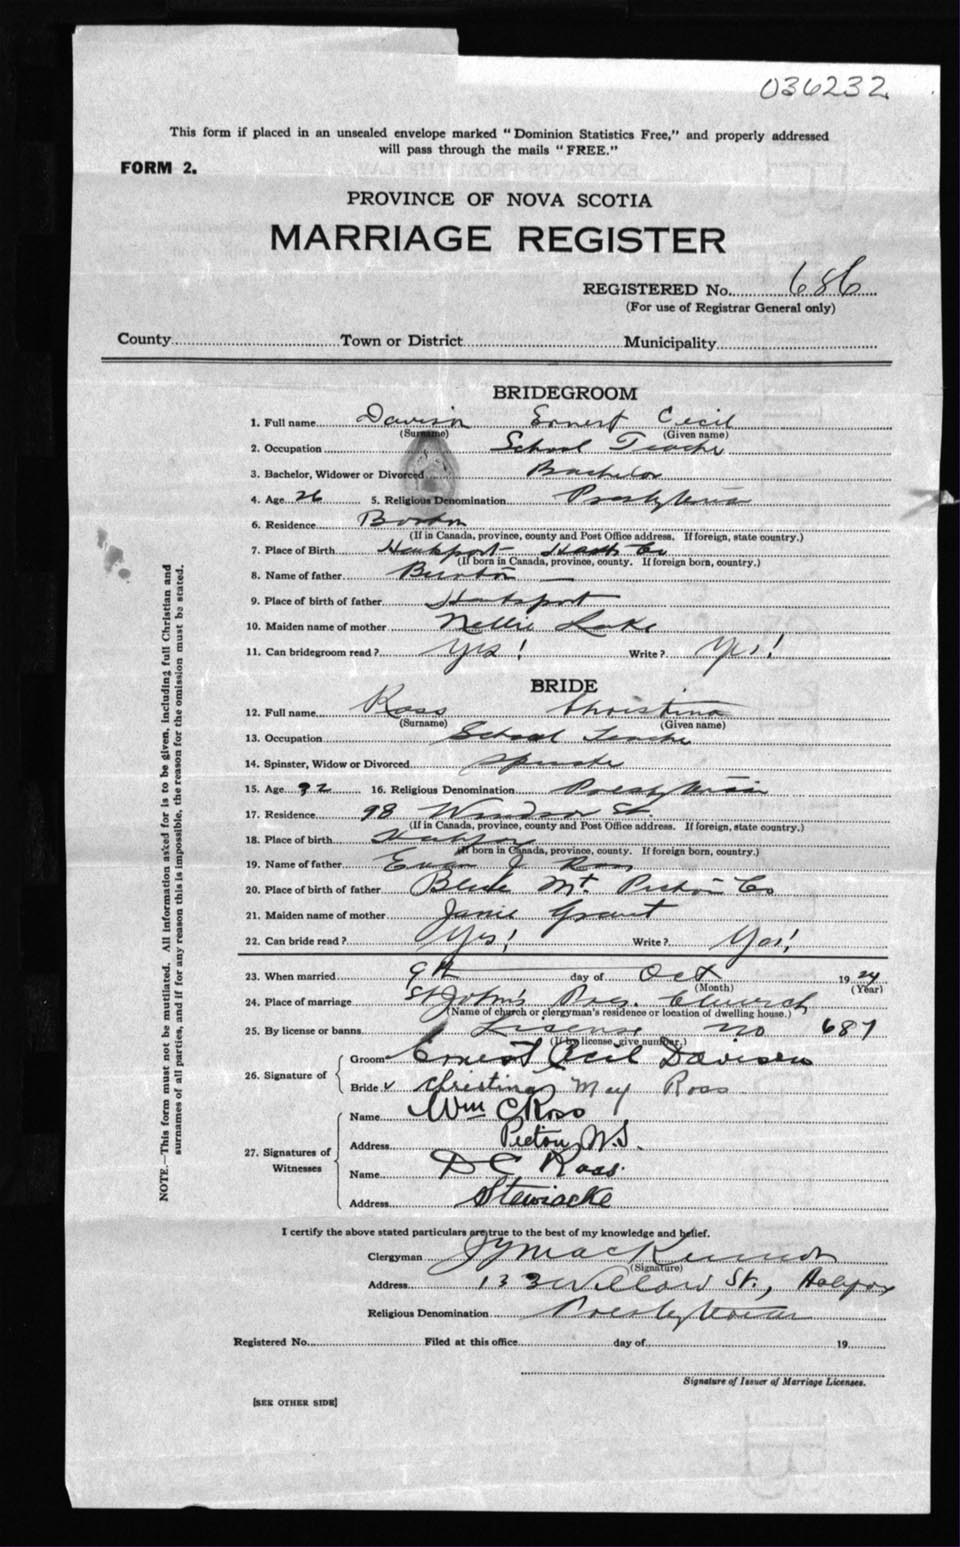 036232
This form if placed in an unsealed envelope marked "Dominion Statistics Free," and properly addressed
will pass through the mails "FREE."
FORM 2.
PROVINCE OF NOVA SCOTIA
MARRIAGE REGISTER
REGISTERED No. 686
(For use of Registrar General only)
County Town or District Municipality
BRIDEGROOM
1. Full name Davison Ernest Cecil
(Surname) (Given name)
2. Occupation School Teacher
3. Bachelor, Widower or Divorced Bachelor
4. Age 26 5. Religious Denomination Presbyterian
6. Residence Boston
(If in Canada, province, county and Post Office address. If foreign, state country.)
7. Place of Birth Hantsport Hants Co
(If born in Canada, province, county. If foreign born, country.)
8. Name of father Burton
9. Place of birth of father Hantsport
10. Maiden name of mother Nellie Lake
11. Can bridegroom read? Yes! Write? Yes!
BRIDE
12. Full name Ross Christina
(Surname) (Given name)
13. Occupation School Teacher
14. Spinster, Widow or Divorced Spinster
15. Age 22 16. Religious Denomination Presbyterian
17. Residence 98 Windsor St.
(If in Canada, province, county and Post Office address. If foreign, state country.)
18. Place of birth Halifax
(If born in Canada, province, county. If foreign born, country.)
19. Name of father Evan J Ross
20. Place of birth of father Blue Mt Pictou Co
21. Maiden name of mother Janie Grant
22. Can bride read? Yes! Write? Yes!
23. When married 9th day of Oct 1924
(Month) (Year)
24. Place of marriage St John's Pres. Church
(Name of church or clergyman's residence or location of dwelling house.)
25. By license or banns License No 687
(If by license, give number.)
Groom Ernest Cecil Davison
26. Signature of
Bride v Christina May Ross
Name Wm C Ross
Address Pictou, N.S.
27. Signatures of
Witnesses
Name D C Ross.
Address Stewiacke
I certify the above stated particulars are true to the best of my knowledge and belief.
Clergyman MacKinnon
(Signature)
Address 133 Willow St., Halifax
Religious Denomination Presbyterian
Registered No. Filed at this office day of 19
Signature of Issuer of Marriage Licenses.
[SEE OTHER SIDE]
NOTE.—This form must not be mutilated. All information asked for is to be given, including full Christian and
surnames of all parties, and if for any reason this is impossible, the reason for the omission must be stated.